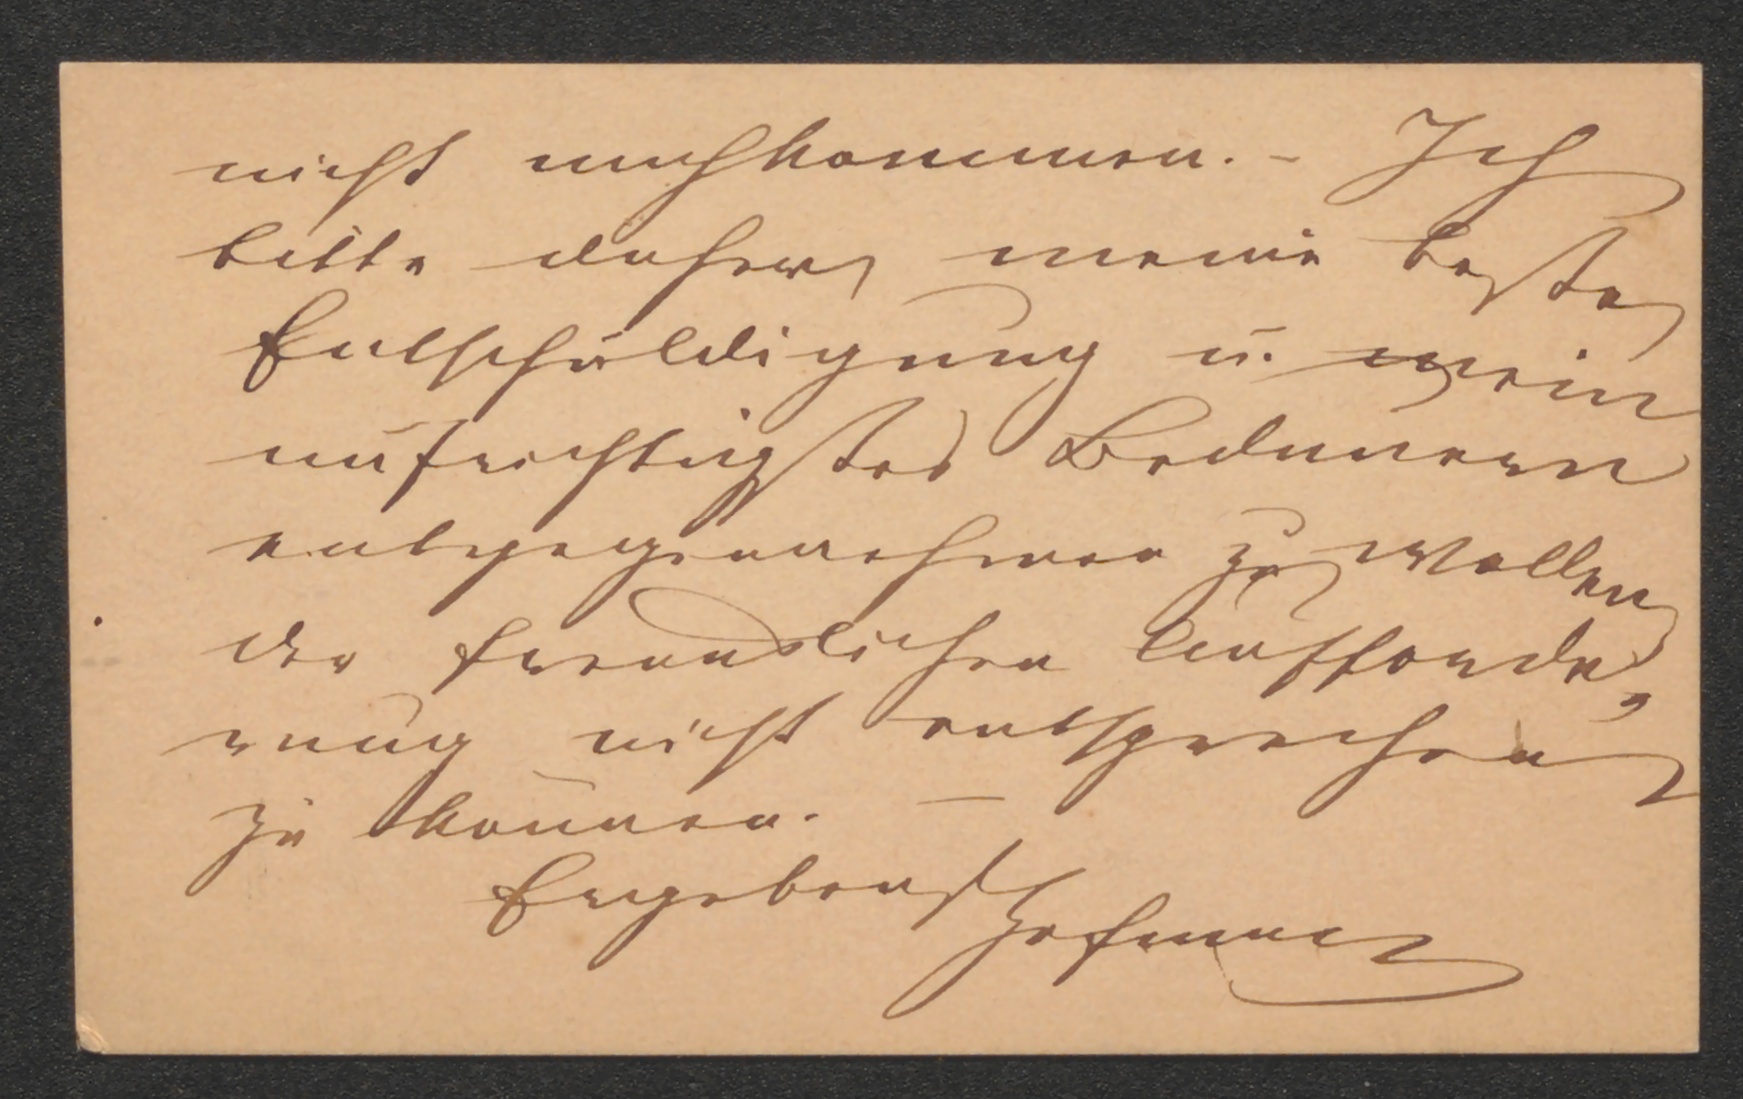 nicht nachkommen. – Ich
bitte daher, meine beste
Entschuldigung u. mein
aufrichtigstes Bedauern
entgegennehmen zu wollen,
der freundlichen Aufforde
rung nicht entsprechen
zu können. –
Ergebenst
Hofmann